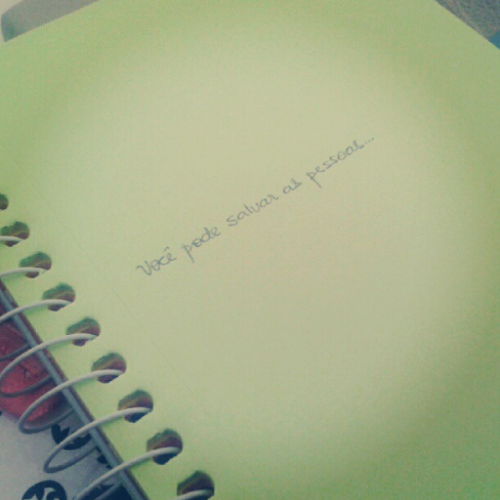 Você pode salvar as pessoas...